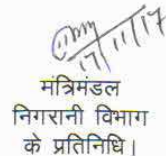 17/11/17
मंत्रिमंडल
निगरानी विभाग
के प्रतिनिधि।